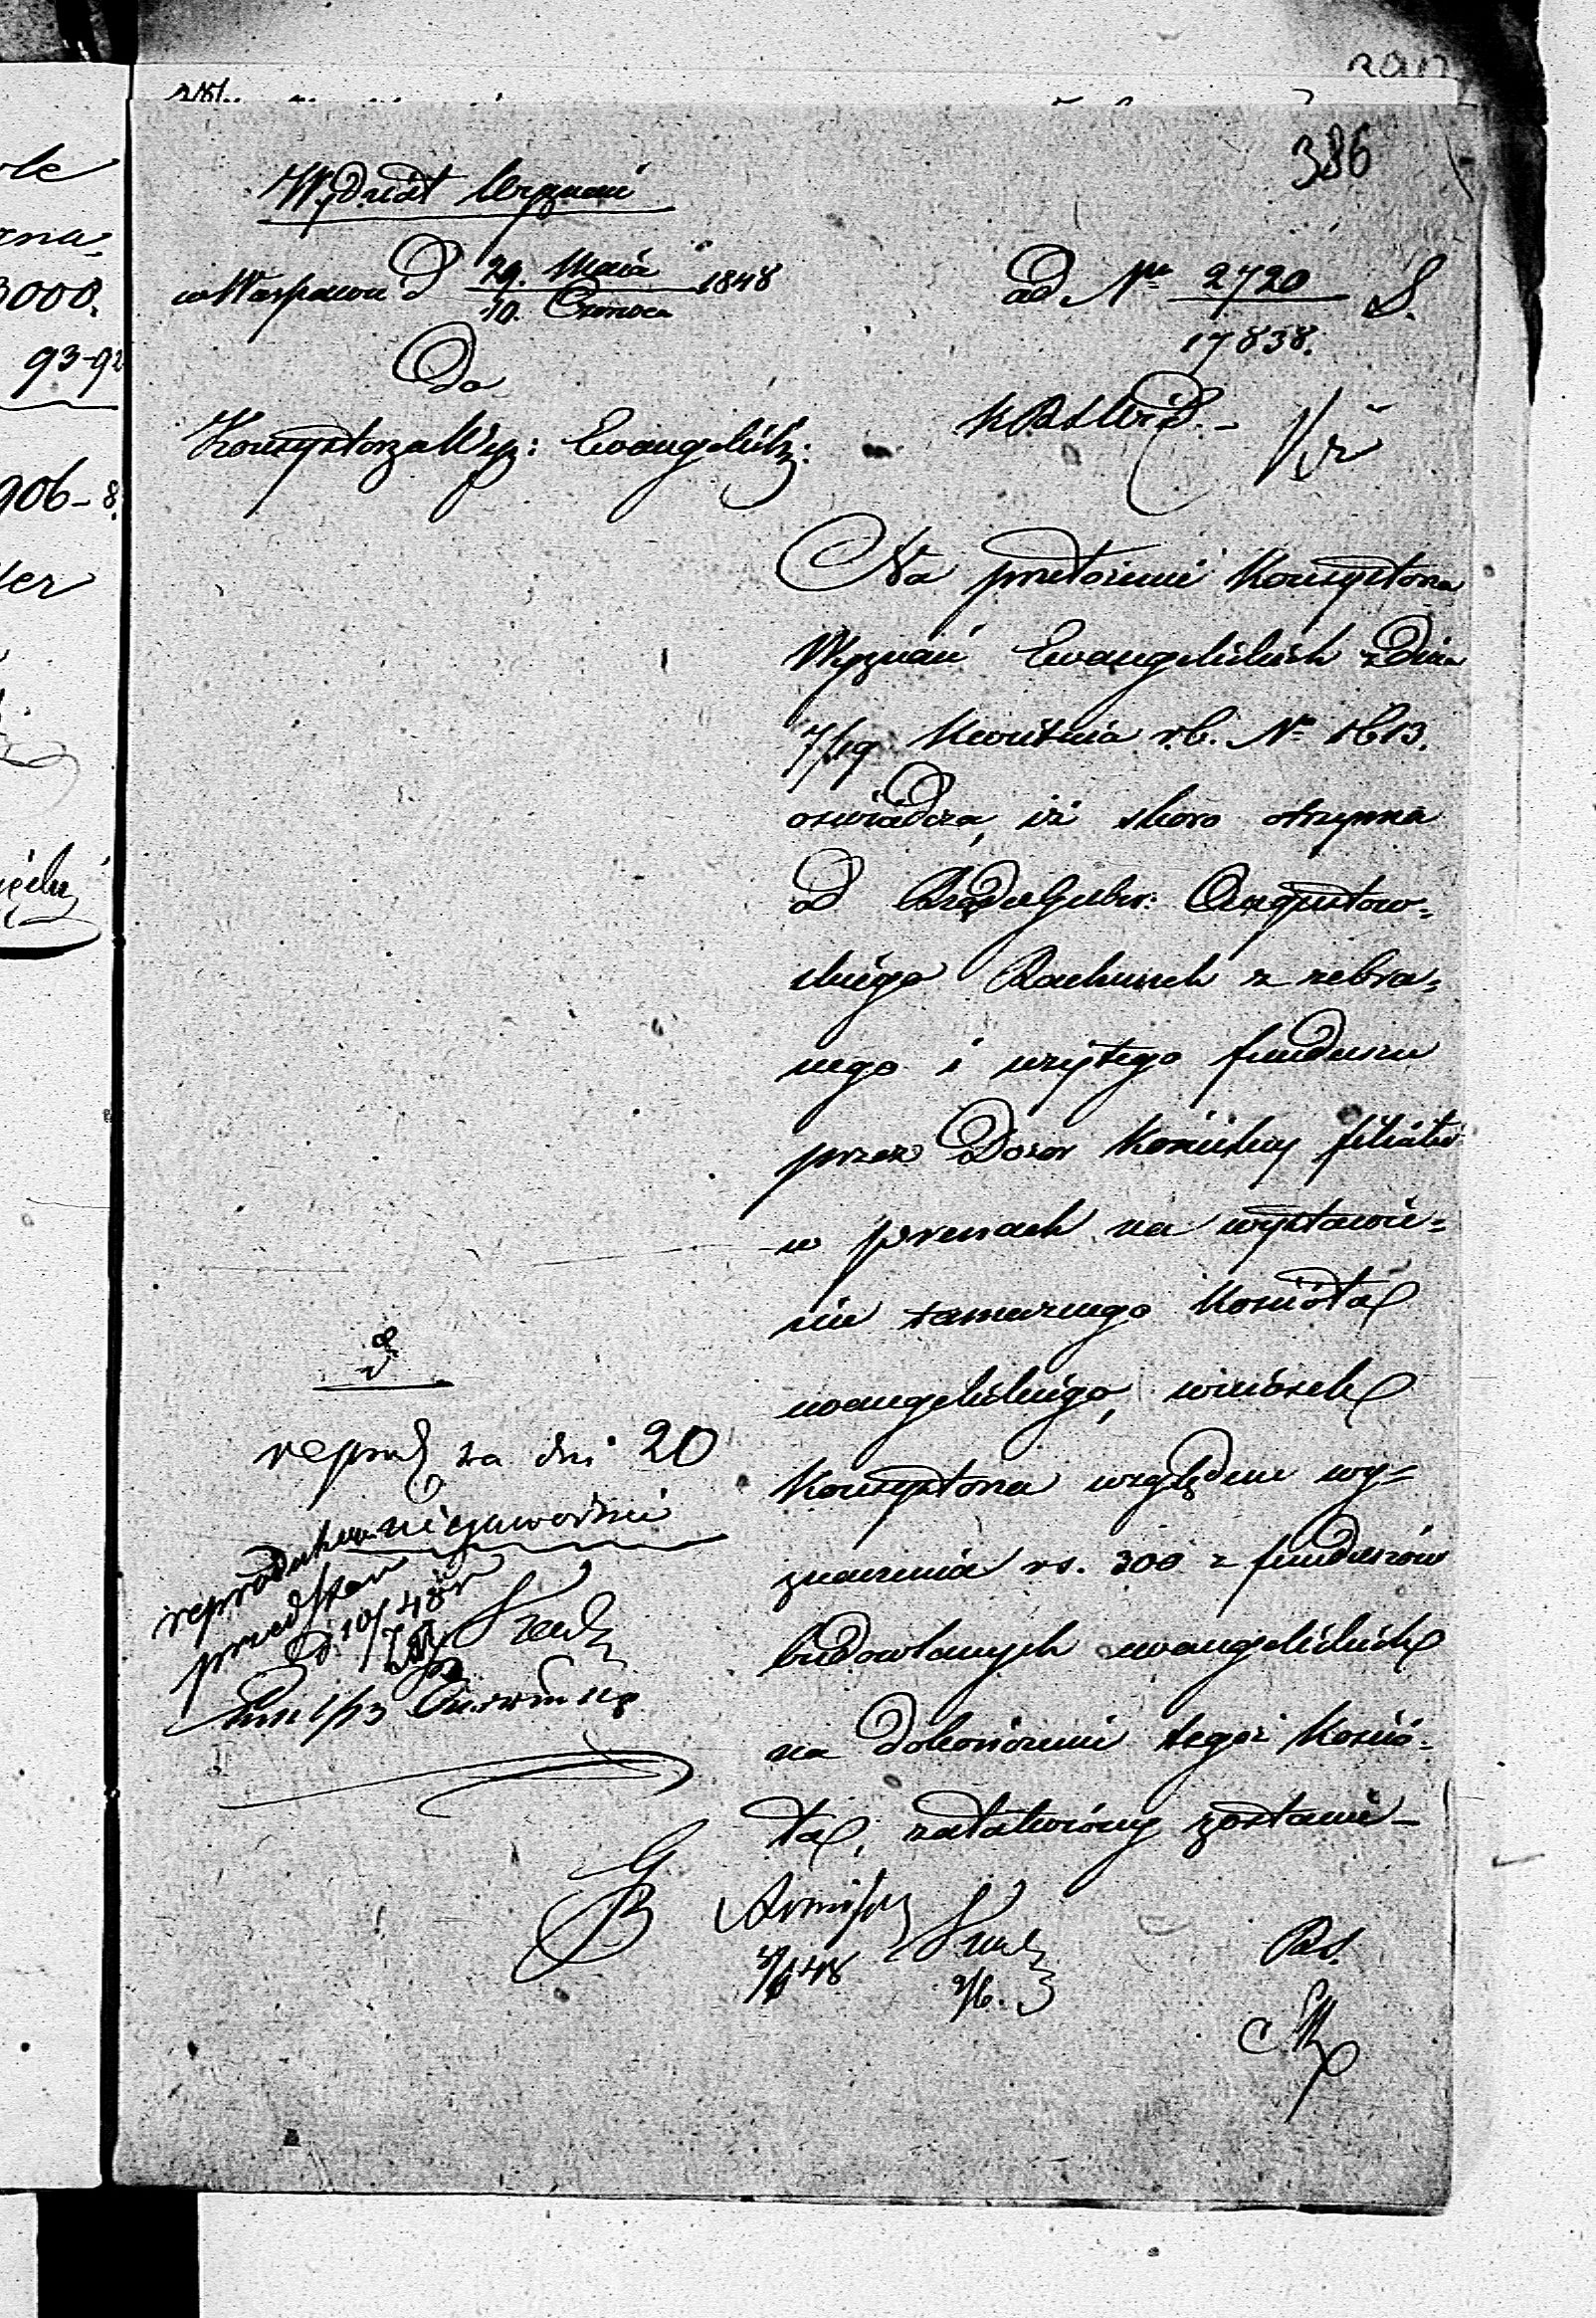 386
Wydział Wyznań
w Warszawie d 29. Maia 1848
10. Czerwca
ad Nr 2720 S.
17838.
Do
Konsystorza Wyz: Ewangelick:
Na przełożenie Konsystorza
Wyznań Ewangelickich z Dnia
7/19 Kwietnia r.b. Nr 1613.
oswiadcza, iż skoro otrzyma
od Rządu Guber: Augustow-
skiego Rachunek z zebra-
nego i użytego funduszu
przez Dozor Kościelny filiału
w Prenach na wystawie-
nie tamecznego Kościoła
ewangelickiego, wniosek
Konsystorza względem wy-
znaczenia rs. 300 z funduszów
budowlanych ewangelickich
na dokończenie tegoż Kościo-
ła, załatwiony zostanie
reprod za dni 20
48
2/6.